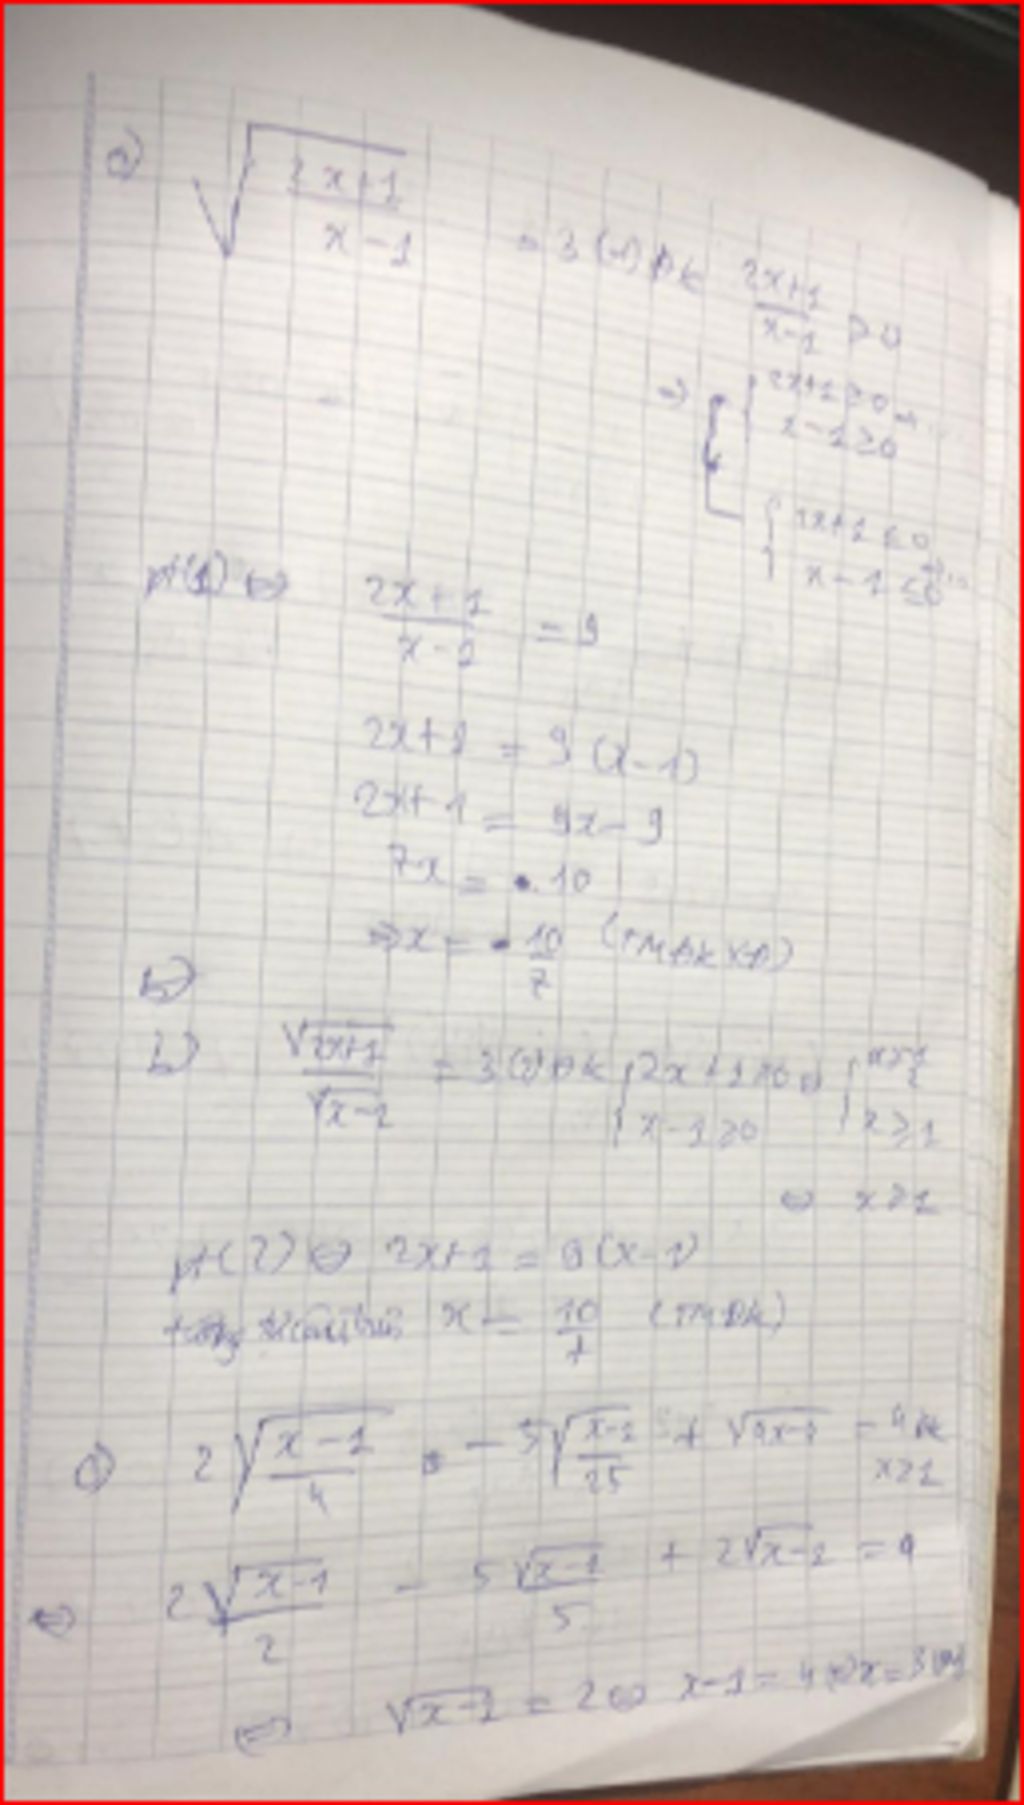 a) √((2x+1)/(x-1)) = 3 (1) Đk (2x+1)/(x-1) ≥ 0
=> [ { 2x+1 ≥ 0
x-1 ≥ 0
{ 2x+1 ≤ 0
x-1 ≤ 0
pt(1) <=> (2x+1)/(x-1) = 9
2x+1 = 9(x-1)
2x+1 = 9x-9
7x = 10
=> x = 10/7 (TMĐKXĐ)
b)
b) √(2x+1)/√(x-1) = 3 (2) Đk { 2x+1 ≥ 0
x-1 ≥ 0 { x ≥ 1
<=> x ≥ 1
pt(2) <=> 2x+1 = 9(x-1)
x = 10/7 (TMĐK)
c) 2√((x-1)/4) - 5√((x-1)/25) + = 4 Đk
x ≥ 1
<=> 2 √(x-1)/2 - 5 √(x-1)/5 + 2√(x-1) = 4
<=> √(x-1) = 2 <=> x-1 = 4 <=> x =